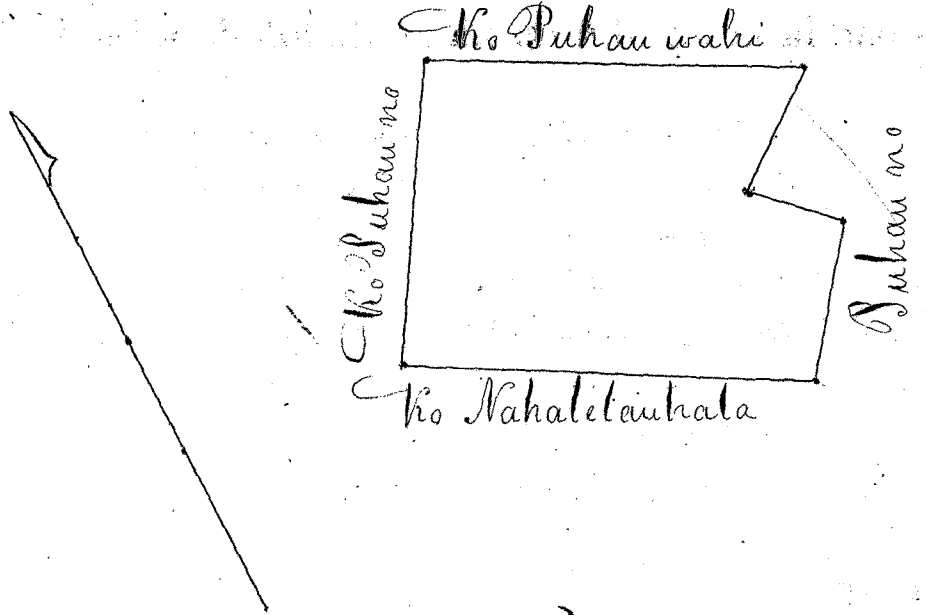 Ko Puhau wahi
Ko Puhau no
Puhau no
Ko Nahalelauhala